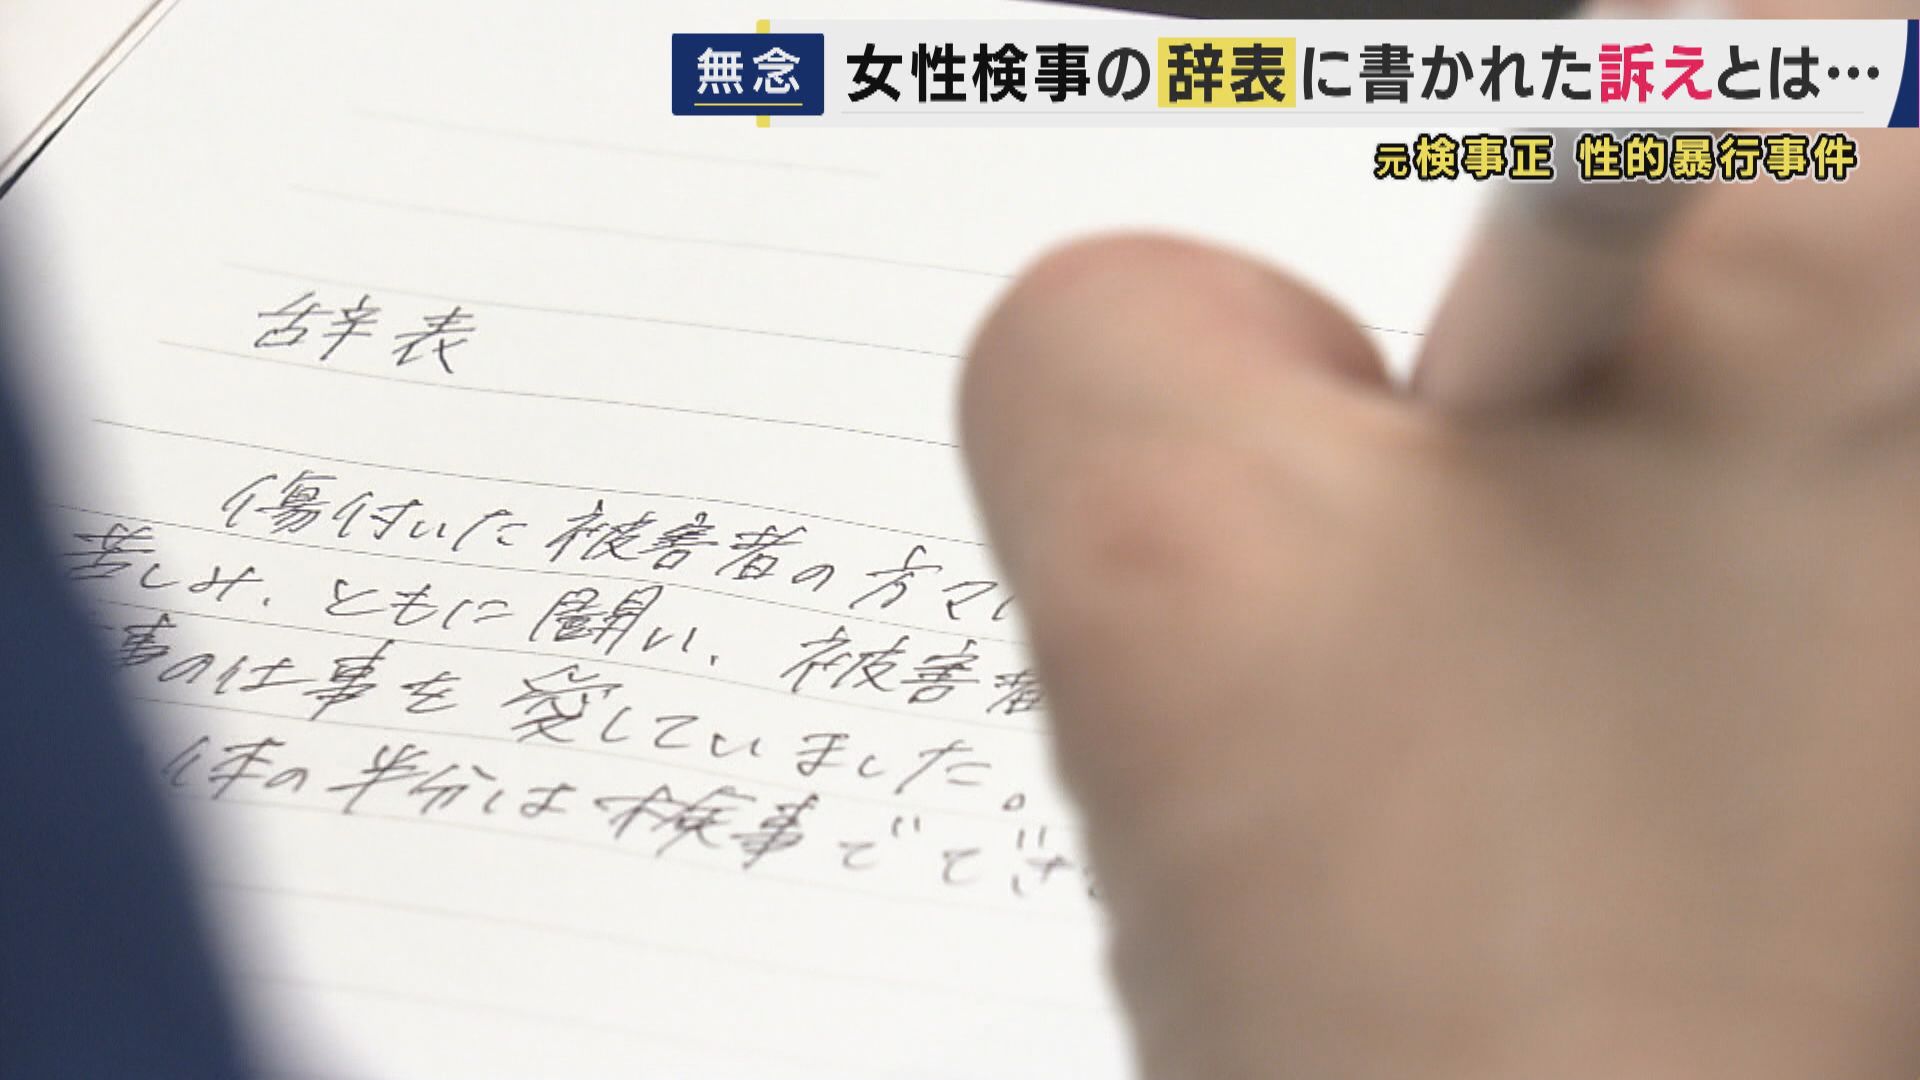 無念
女性検事の辞表に書かれた訴えとは…
元検事正 性的暴行事件
辞表
傷付いた被害者の方々
苦しみ、ともに闘い、被害者
事の仕事を愛していました。
体の半分は検事でできて